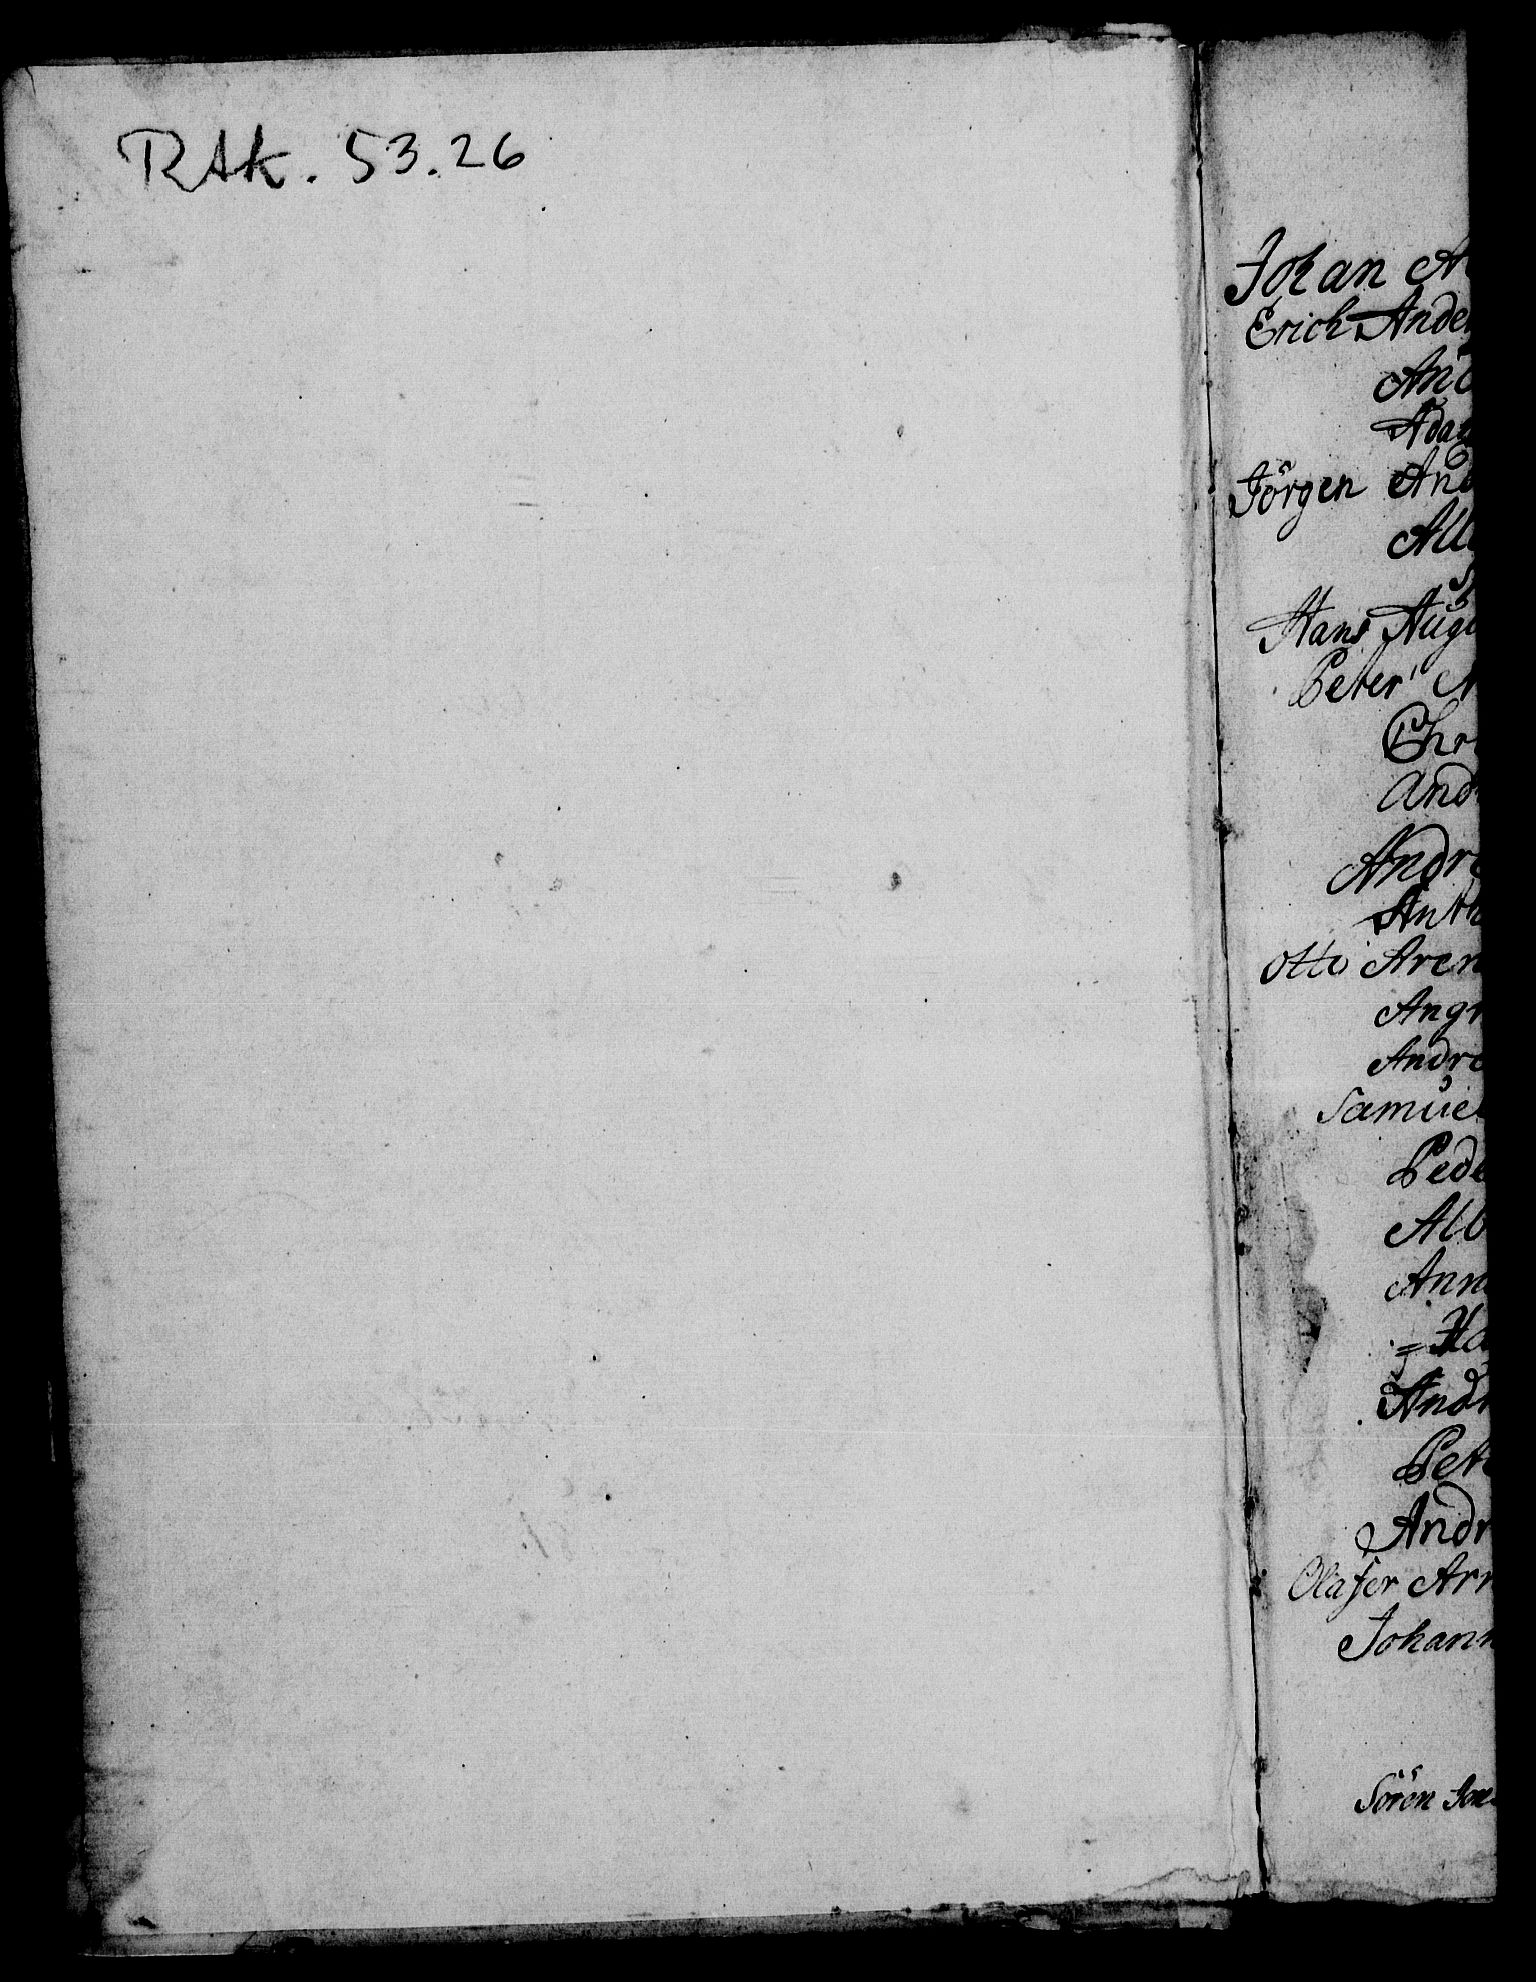 RAk. 53.26
Johan A
Erich Ande
And
Ada
Jörgen And
All
Hans Aug
Peter A
Chr
And
Andre
Anth
Otto Aren
Angr
Andre
Samuel
Pede
Alb
Anna
= Ha
Andr
Pet
Andr
Olafer Arn
Johann
Sören Jon